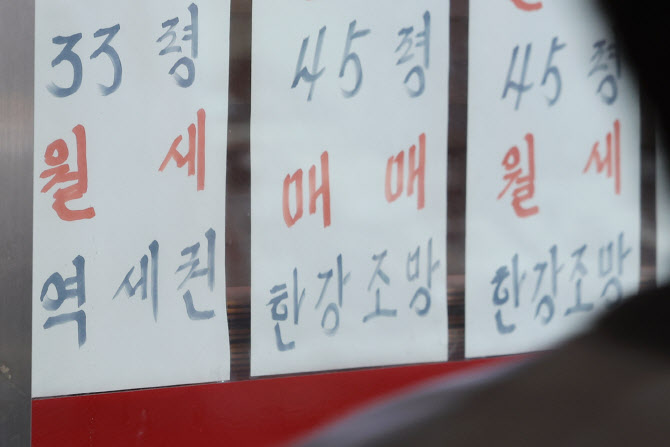 33령
월세
역세권
45령
매매
한강조방
45령
월세
한강조방